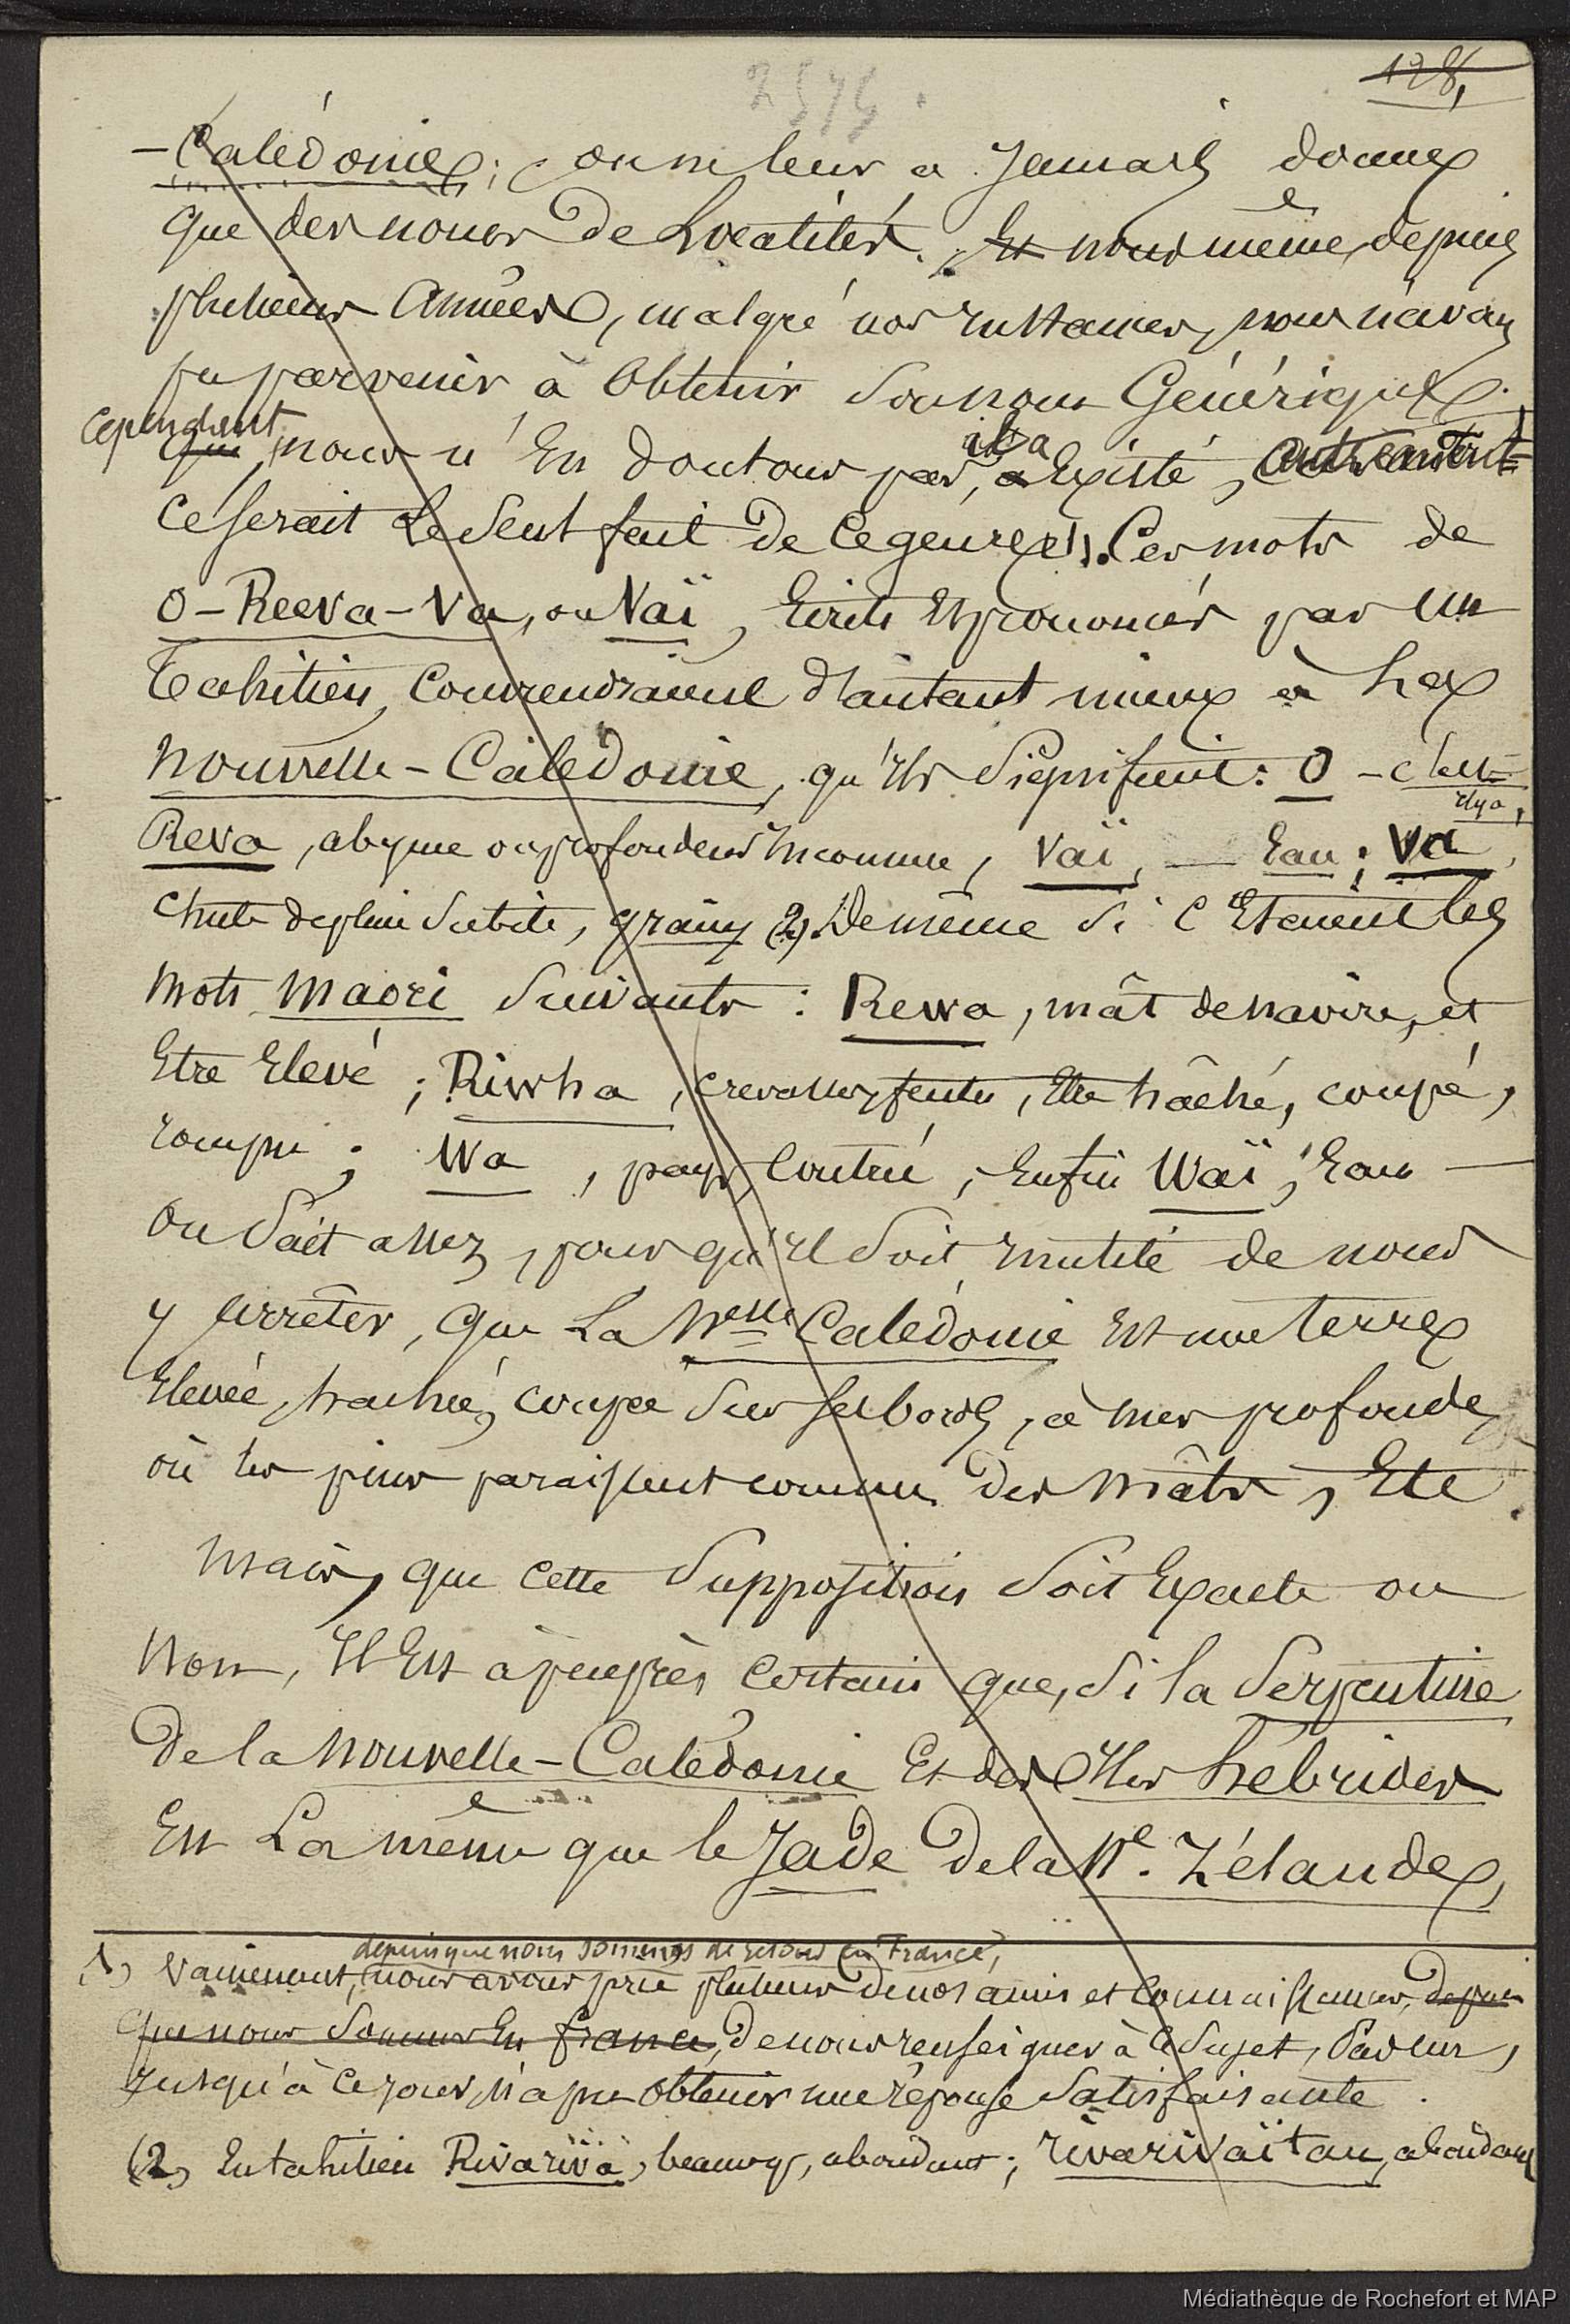 128,
2575.
-Calédonie; on ne leur a jamais donné
que des noms de Localités. Et nous même, depuis
plusieurs Années, malgré nos instances, nous n'avons
pu parvenir à Obtenir son nom Générique.
Cependant
qui nous n'En doutons pas, il a Existé, autrement
ce serait le seul fait de ce genre (1). Ces mots de
O-Reeva-Va, ou Vaï, Ecrits et prononcés par un
Tahitien, conviendraient d'autant mieux à la
Nouvelle-Calédonie, qu'ils signifient: O - c'est,
il y a,
Reva, abyme ou profondeur inconnue, Vaï, — Eau; Va,
chute de pluie subite, grains (2). De même si c'Etaient les
mots maori suivants: Rewa, mât de navire, et
Etre Elevé; Riwha, crevasses, fentes, Etre hâché, coupé,
rompu; Wa, pays, contrée, Enfin Waï, Eau —
On sait assez, pour qu'il soit inutile de nous
y arrêter, que La Nelle Calédonie Est une terre
Elevée, hachée, coupée sur ses bords, à mer profonde,
où les pins paraissent comme des mâts, Etc
Mais, que cette supposition soit Exacte ou
Non, Il Est à peu près certain que, si la Serpentine
de la Nouvelle-Calédonie Et des Iles hébrides
Est La même que le Jade de la Ne. Zélande,
depuis que nous sommes de retour en France,
1) Vainement, nous avons prié plusieurs de nos amis et connaissances, depuis
que nous sommes En France, de nous renseigner à ce sujet, Pas un,
jusqu'à ce jour, n'a pu obtenir une réponse satisfaisante.
(2) En tahitien Rivariva, beaucoup, abondant; rivarivaïtau, abondant
Médiathèque de Rochefort et MAP